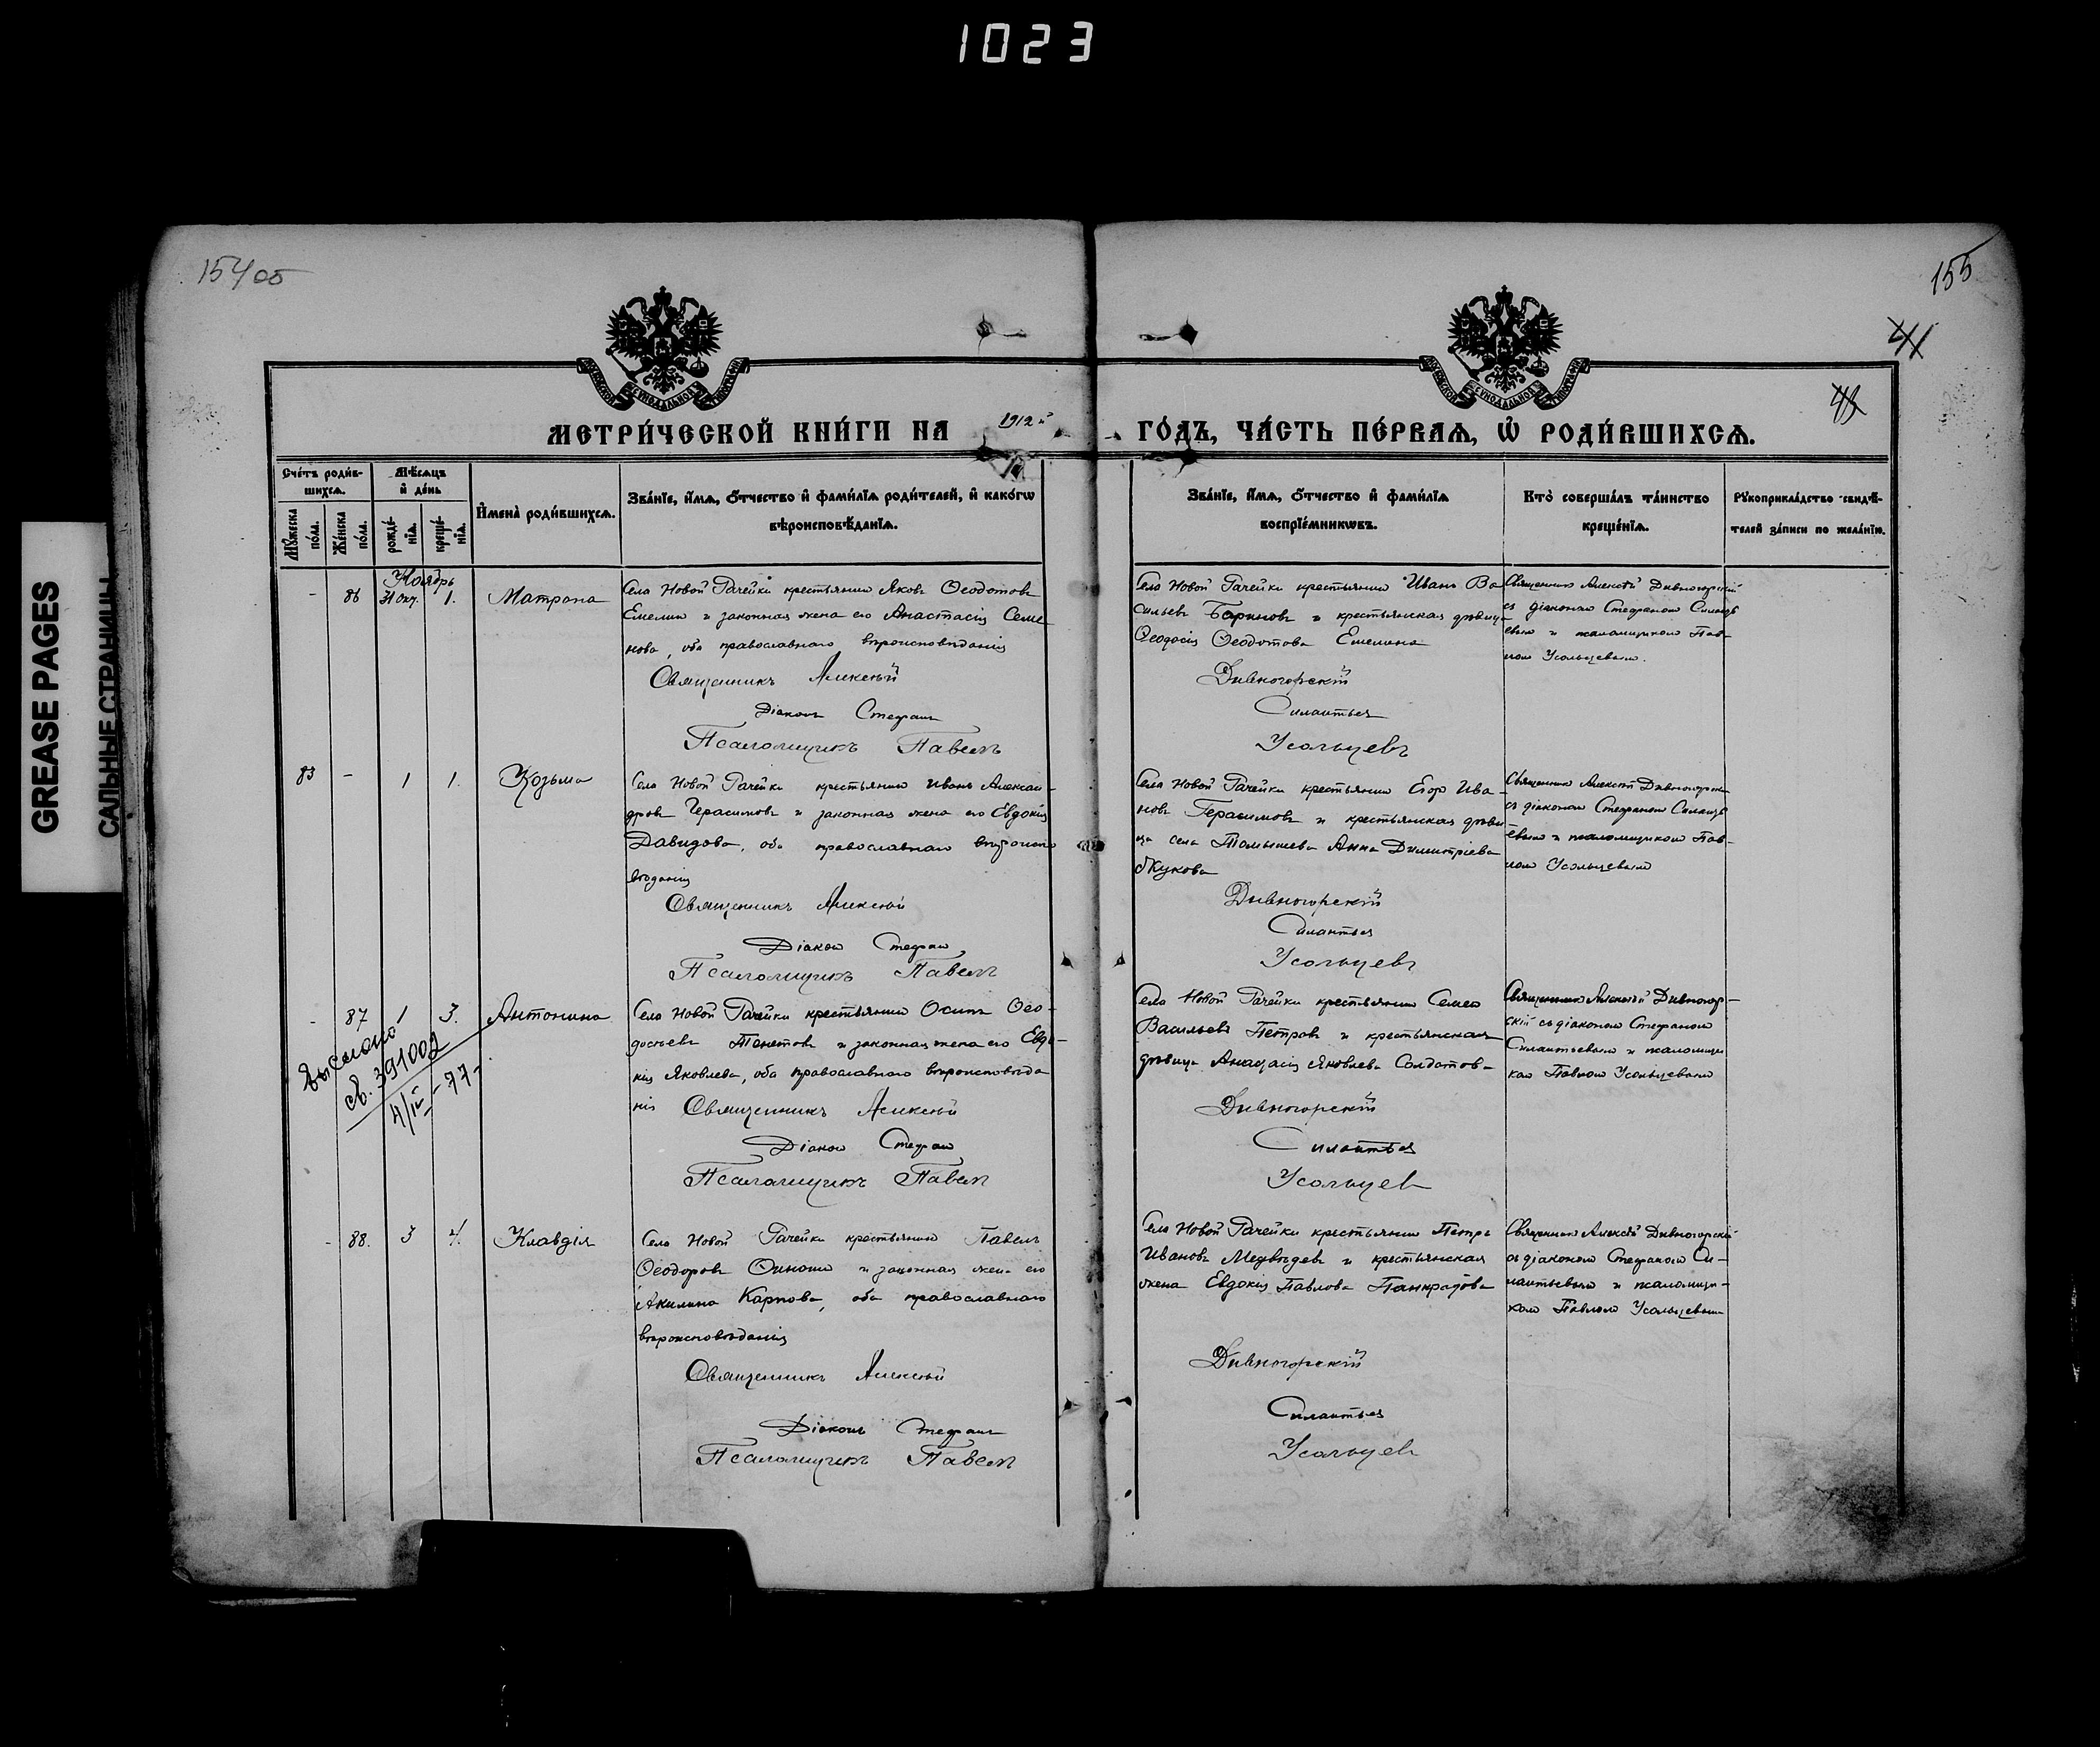 1023
154об
155
41
43
GREASE PAGES
САЛЬНЫЕ СТРАНИЦЫ
МОСКОВСКОЙ СѴНОДАЛЬНОЙ ТИПОГРАФІИ
МОСКОВСКОЙ СѴНОДАЛЬНОЙ ТИПОГРАФІИ
МЕТРИ́ЧЕСКОЙ КНИ́ГИ НА 1912й ГО́ДЪ, ЧА́СТЬ ПЕ́РВАѦ, Ѡ РОДИ́ВШИХСѦ.
Сче́тъ роди́в-
шихсѧ.
Мѣ́сѧцъ
и де́нь
Мꙋ́жеска по́ла.
Же́нска по́ла.
рожде́-нїѧ.
креще́-нїѧ.
И҆мена̀ роди́вшихсѧ.
Зва́нїе, и҆́мѧ, о҆́тчество и҆ фами́лїѧ роди́телей, и҆ како́гѡ
вѣроисповѣ́данїѧ.
Зва́нїе, и҆́мѧ, о҆́тчество и҆ фами́лїѧ
воспрїе́мникѡвъ.
Кто̀ соверша́лъ та́инство
креще́нїѧ.
Рꙋкоприкла́дство свидѣ́-
телей за́писи по жела́нїю.
Ноябрь
- 86 31 окт. 1. Матрона
Села Новой Рачейки крестьянин Яков Ѳеодотовъ
Емелин и законная жена его Анастасія Семе
нова, оба православнаго вѣроисповѣданія
Священникъ Алексѣй
Діаконъ Стефанъ
Псаломщикъ Павелъ
Села Новой Рачейки крестьянин Иванъ Ва
сильевъ Баринов и крестьянская дѣвица
Ѳеодосія Ѳеодотова Емелина
Дивногорскій
Силантьев
Усольцевъ
Священник Алексѣй Дивногорскій
съ діаконом Стефаном Силанть
евым и псаломщиком Пав-
лом Усольцевым.
83 - 1 1. Козьма
Села Новой Рачейки крестьянин Иванъ Алексан-
дровъ Герасимовъ и законная жена его Евдокія
Давидова, оба православнаго вѣроиспо
вѣданія
Священникъ Алексѣй
Діакон Стефан
Псаломщикъ Павелъ
Села Новой Рачейки крестьянин Егор Ива-
новъ Герасимовъ и крестьянская дѣви
ца села Томышева Анна Димитріева
Жукова
Дивногорскій
Силантьев
Усольцевъ
Священник Алексѣй Дивногорск
съ діаконом Стефаном Силанть
евым и псаломщиком Пав-
лом Усольцевым
- 87 1 3. Антонина
Выслано
св. 391002
4/IV-77-
Села Новой Рачейки крестьянин Осипъ Ѳео-
досьевъ и законная жена его Евдо-
кія Яковлева, оба православнаго вѣроисповѣда
нія Священникъ Алексѣй
Діакон Стефан
Псаломщикъ Павелъ
Села Новой Рачейки крестьянин Семен
Васильевъ Петровъ и крестьянская
дѣвица Анастасія Яковлева Солдатова
Дивногорскій
Силантьев
Усольцев
Священник Алексѣй Дивногор-
скій съ діаконом Стефаном
Силантьевым и псаломщи
ком Павлом Усольцевым
- 88. 3 4. Клавдія
Села Новой Рачейки крестьянин Павелъ
Ѳеодоровъ и законная жена его
Акилина Карпова, оба православнаго
вѣроисповѣданія
Священникъ Алексѣй
Діаконъ Стефанъ
Псаломщикъ Павелъ
Села Новой Рачейки крестьянин Петръ
Ивановъ Медвѣдев и крестьянская
жена Евдокія Павлова Панкратова
Дивногорскій
Силантьев
Усольцев
Священник Алексѣй Дивногорскій
съ діаконом Стефаном Си-
лантьевым и псаломщи-
ком Павлом Усольцевым